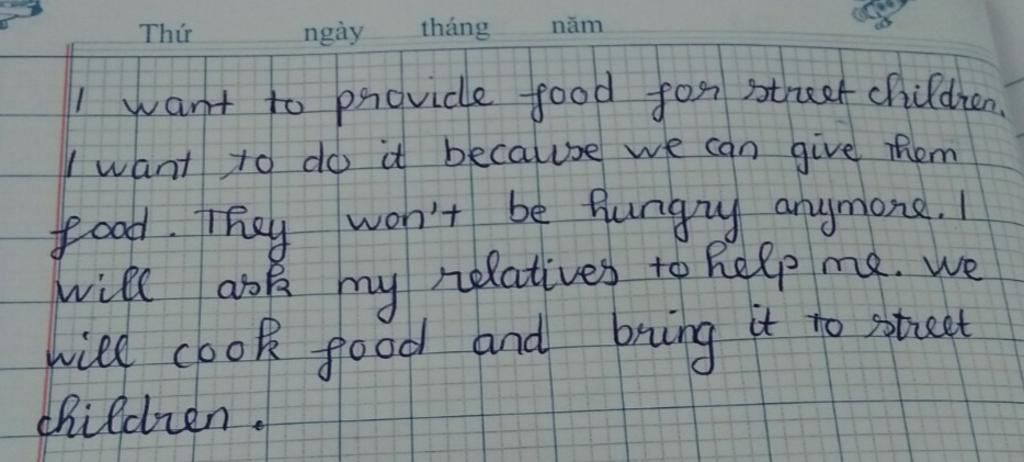 Thứ ngày tháng năm
I want to provide food for street children.
I want to do it because we can give them
food. They won't be hungry anymore. I
will ask my relatives to help me. We
will cook food and bring it to street
children.